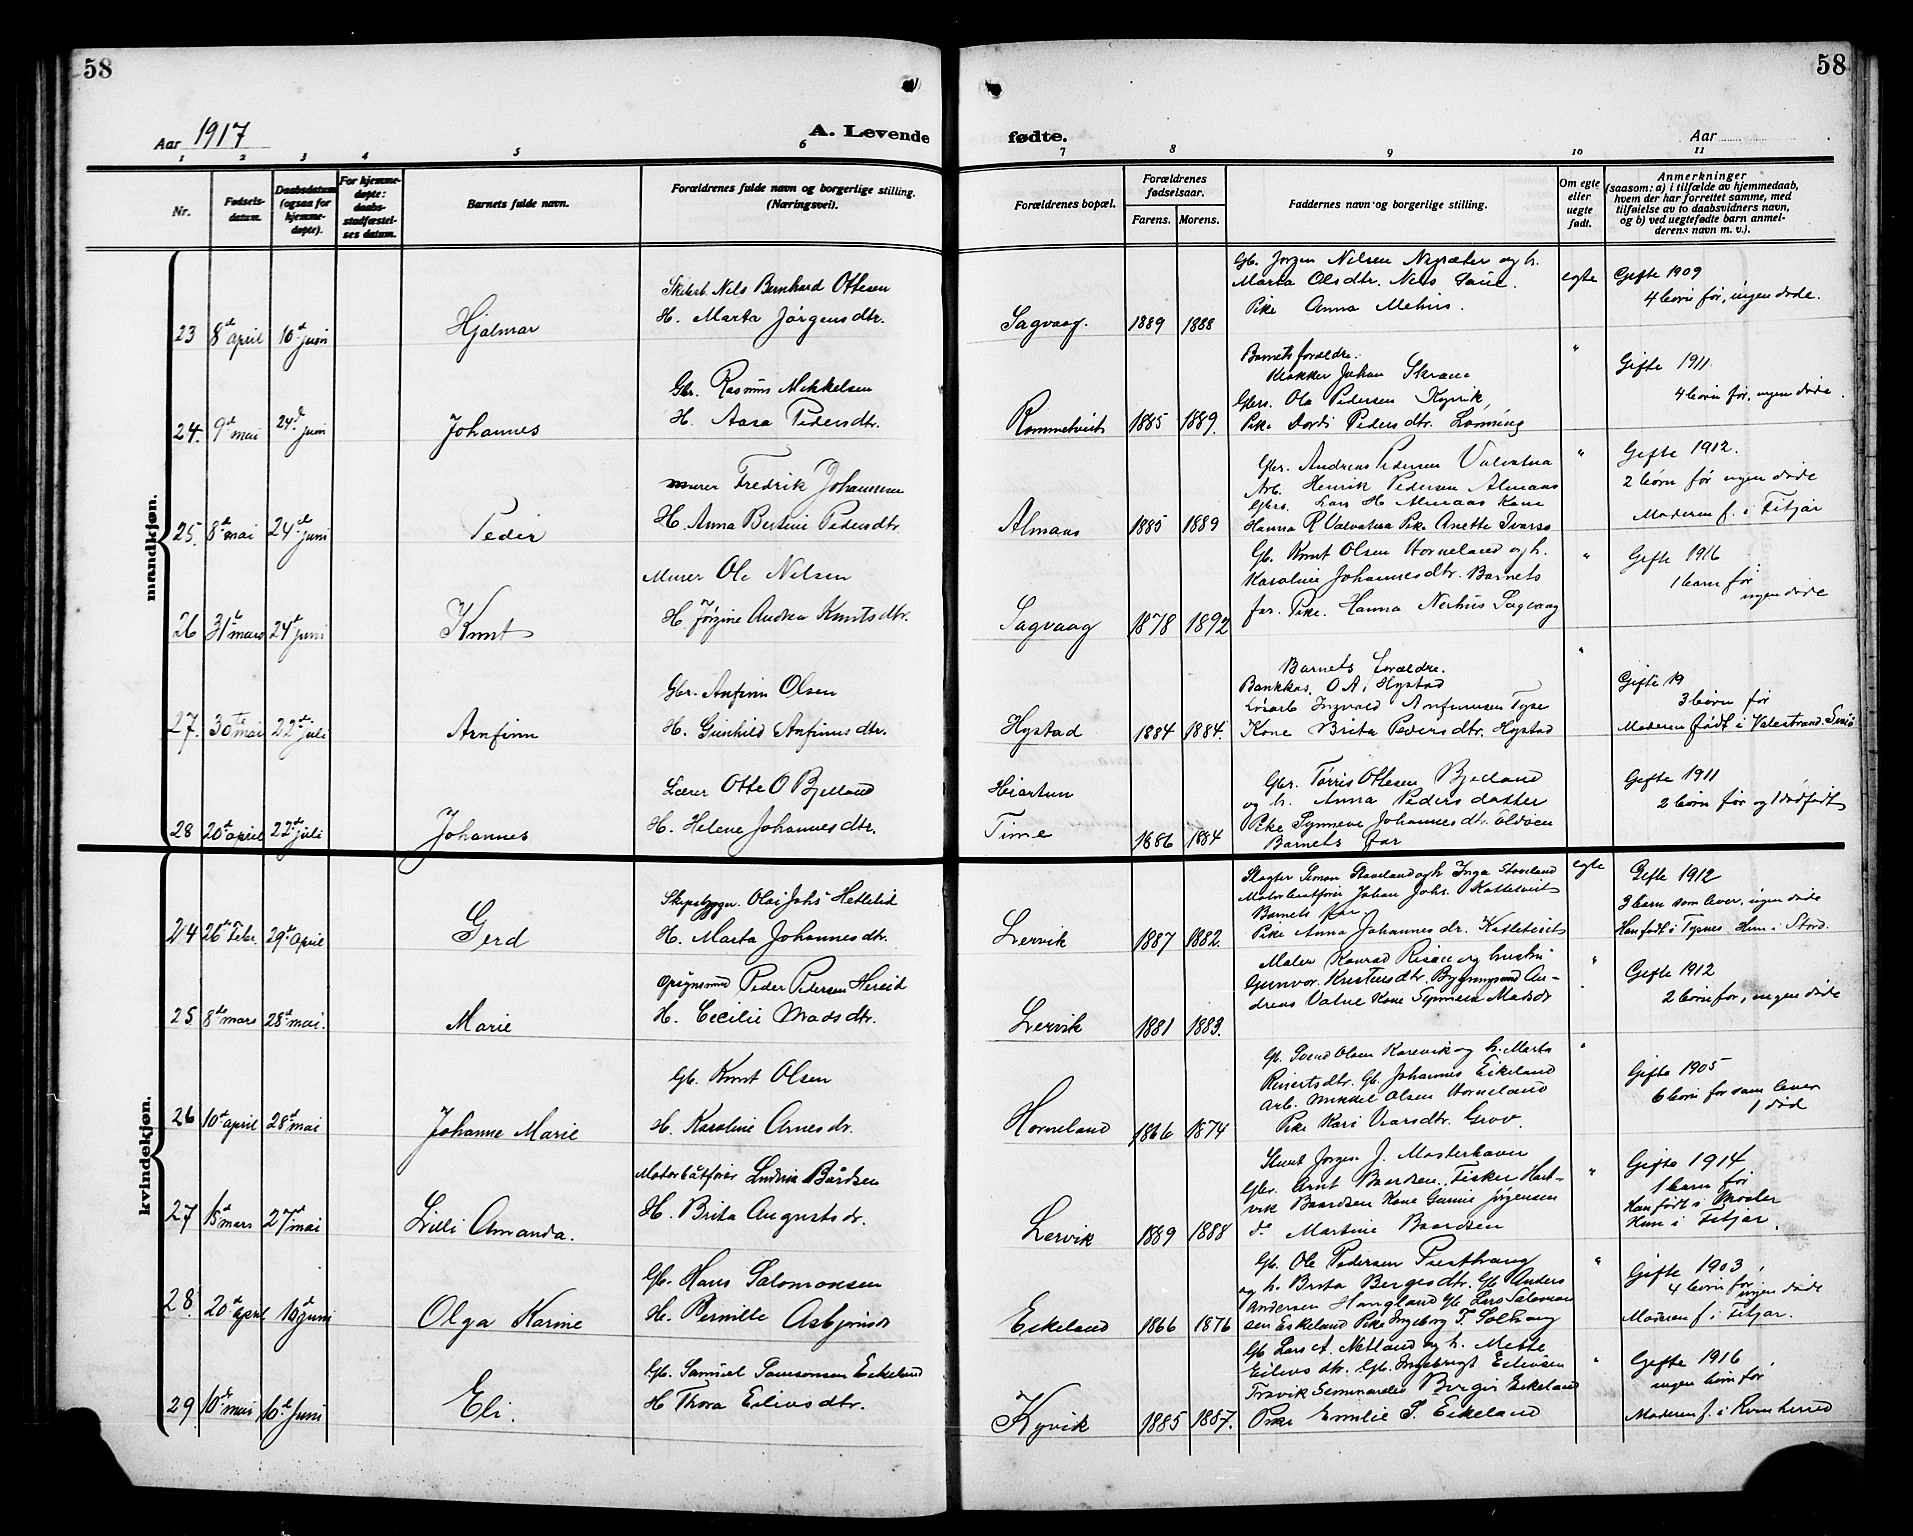 58
58
Aar 1917
A. Levende
fødte.
Aar
1 2 3 4 5 6 7 8 9 10 11
Nr.
Fødsels-
datum.
Daabsdatum
(ogsaa for
hjemme-
døpte).
For hjemme-
døpte:
daabs-
stadfæstel-
ses datum.
Barnets fulde navn.
Forældrenes fulde navn og borgerlige stilling.
(Næringsvei).
Forældrenes bopæl.
Forældrenes
fødselsaar.
Farens. Morens.
Faddernes navn og borgerlige stilling.
Om egte
eller
uegte
født.
Anmerkninger
(saasom: a) i tilfælde av hjemmedaab,
hvem der har forrettet samme, med
tilføielse av to daabsvidners navn,
og b) ved uegtefødte barn anmel-
derens navn m. v.).
mandkjøn.
23 8de april 10de juni Hjalmar
Nils Bernhard Ottesen
H. Marta Jørgensdtr.
Sagvaag. 1889 1888
Gb. Jørgen Nilsen og h.
Marta Olsdtr. Nils
Pike Anna Mehus.
egte
Gifte 1909
4 børn før, ingen døde.
24. 9de mai 24de juni Johannes
Gbr. Rasmus Mikkelsen
H. Aasa Pedersdtr.
Rommetveit 1885 1889.
Barnets forældre.
Klokker Johan
Gbrs. Ola Pedersen Kyvik,
Pike Dordi Pedersdtr. Lønning
"
Gifte 1911.
4 børn før, ingen døde.
25. 8de mai 24de juni Peder
murer Fredrik Johannesen
H. Anna Bertine Pedersdtr.
Almaas 1885 1889
Gbr. Andreas Pedersen Valvatna
Arb. Henrik Pedersen Almaas
Gbrs. Lars H. Almaas Kone
Hanna R Valvatna Pike Anette
"
Gifte 1912.
2 børn før ingen døde
Moderen f. i Fitjar
26 31te mars 24de juni Knut
Murer Ole Nilsen
H. Jørgine Andrea Knutsdtr.
Sagvaag 1878 1892
Gb. Knut Olsen Horneland og h.
Karoline Johannesdtr. Barnets
far. Pike. Hanna Nerhus Sagvaag
"
Gifte 1916
1 barn før
ingen døde
27. 30te mai 22de juli Arnfinn
Gbr. Anfinn Olsen
H. Gunhild Anfinnsdtr.
Hystad 1884 1884.
Barnets forældre.
Bankkas. O A. Hystad
Løsarb Ingvald Anfinnsen Tyse
Kone Brita Pedersdtr. Hystad
"
Gifte 19
3 børn før
Moderen født i Valestrand.
28 20de april 22de juli Johannes
Lærer Otte O Bjelland
H. Helene Johannesdtr.
Time 1886 1884
Gbr. Tørris Ottesen Bjelland
og h. Anna Pedersdatter
Pike Synneve Johannesdtr.
Barnets far
Gifte 1911
2 børn før og 1 dødfødt
kvindekjøn.
24 26de Febr. 29de april Gerd
Skipsbygr. Olai Johs Hetleled
H. Marta Johannesdtr.
Lervik 1887 1882.
Slagter Simon Staveland og h Inga Staveland
Johan Johs. Katleveit
Barnets far
Pike Anna Johannesdr. Katleveit
egte
Gifte 1912
3 barn som lever, ingen døde
Han født i Tysnes Hun i Stord.
25 8de mars 28de mai. Marie
Peder Pedersen Hereid
H. Cecilie Madsdtr.
Lervik 1881 1883.
Maler Konrad Risøe og hustru
Gunvor Knutsdtr. Bygningsmd An-
dreas Valne Kone Synneva Madsdr
"
Gifte 1912
2 børn før, ingen døde
26 10de april 28de mai Johanne Marie
Gb. Knut Olsen
H. Karoline Arnesdr.
Horneland 1866 1874
Gb. Svend Olsen Korevik og h. Marta
Reinertsdtr. Gb. Johannes Eikeland
Arb. Mikkel Olsen Horneland
Pike Kari Ivarsdtr. Grov.
"
Gifte 1905
6 børn før som lever
1 død
27 18de mars 27de mai Lilli Amanda.
Motorbåtfører Ludvik Bårdsen
H. Brita Augustsdr.
Lervik 1889 1888
Jørgen J. Mosterhavn
Gbr. Arnt Bardsen. Fisker Hart-
vik Baardsen Kone Gunnie Jørgensen
do Martine Baardsen
"
Gifte 1914
1 barn før
Han født i Moster
Hun i Fitjar.
28. 20de april 10de juni Olga Karine
Gb. Hans Salomonsen
H. Pernille Asbjørnsdr
Eikeland 1866 1876
Gb. Ole Pedersen Presthaug
og h. Brita Bergesdtr. Gb Anders
Andersen Haugland Gb. Lars Salomon
sen Eskeland Pike Ingeborg T.
"
Gifte 1903
4 børn før
ingen døde
Moderen f. i Fitjar.
29. 10de mai 10de Juni Eli.
Gb. Samuel Samsonsen Eikeland
H Thora Eilivsdtr.
Kyvik 1885 1887.
Gb Lars A. Netland og h. Mette
Eilivsdtr. Gb. Ingebrigt Eilivsen
Travik Birger Eikeland
Pike Emilie S. Eikeland
"
Gifte 1916
ingen børn før
Moderen f. i Kvinherred